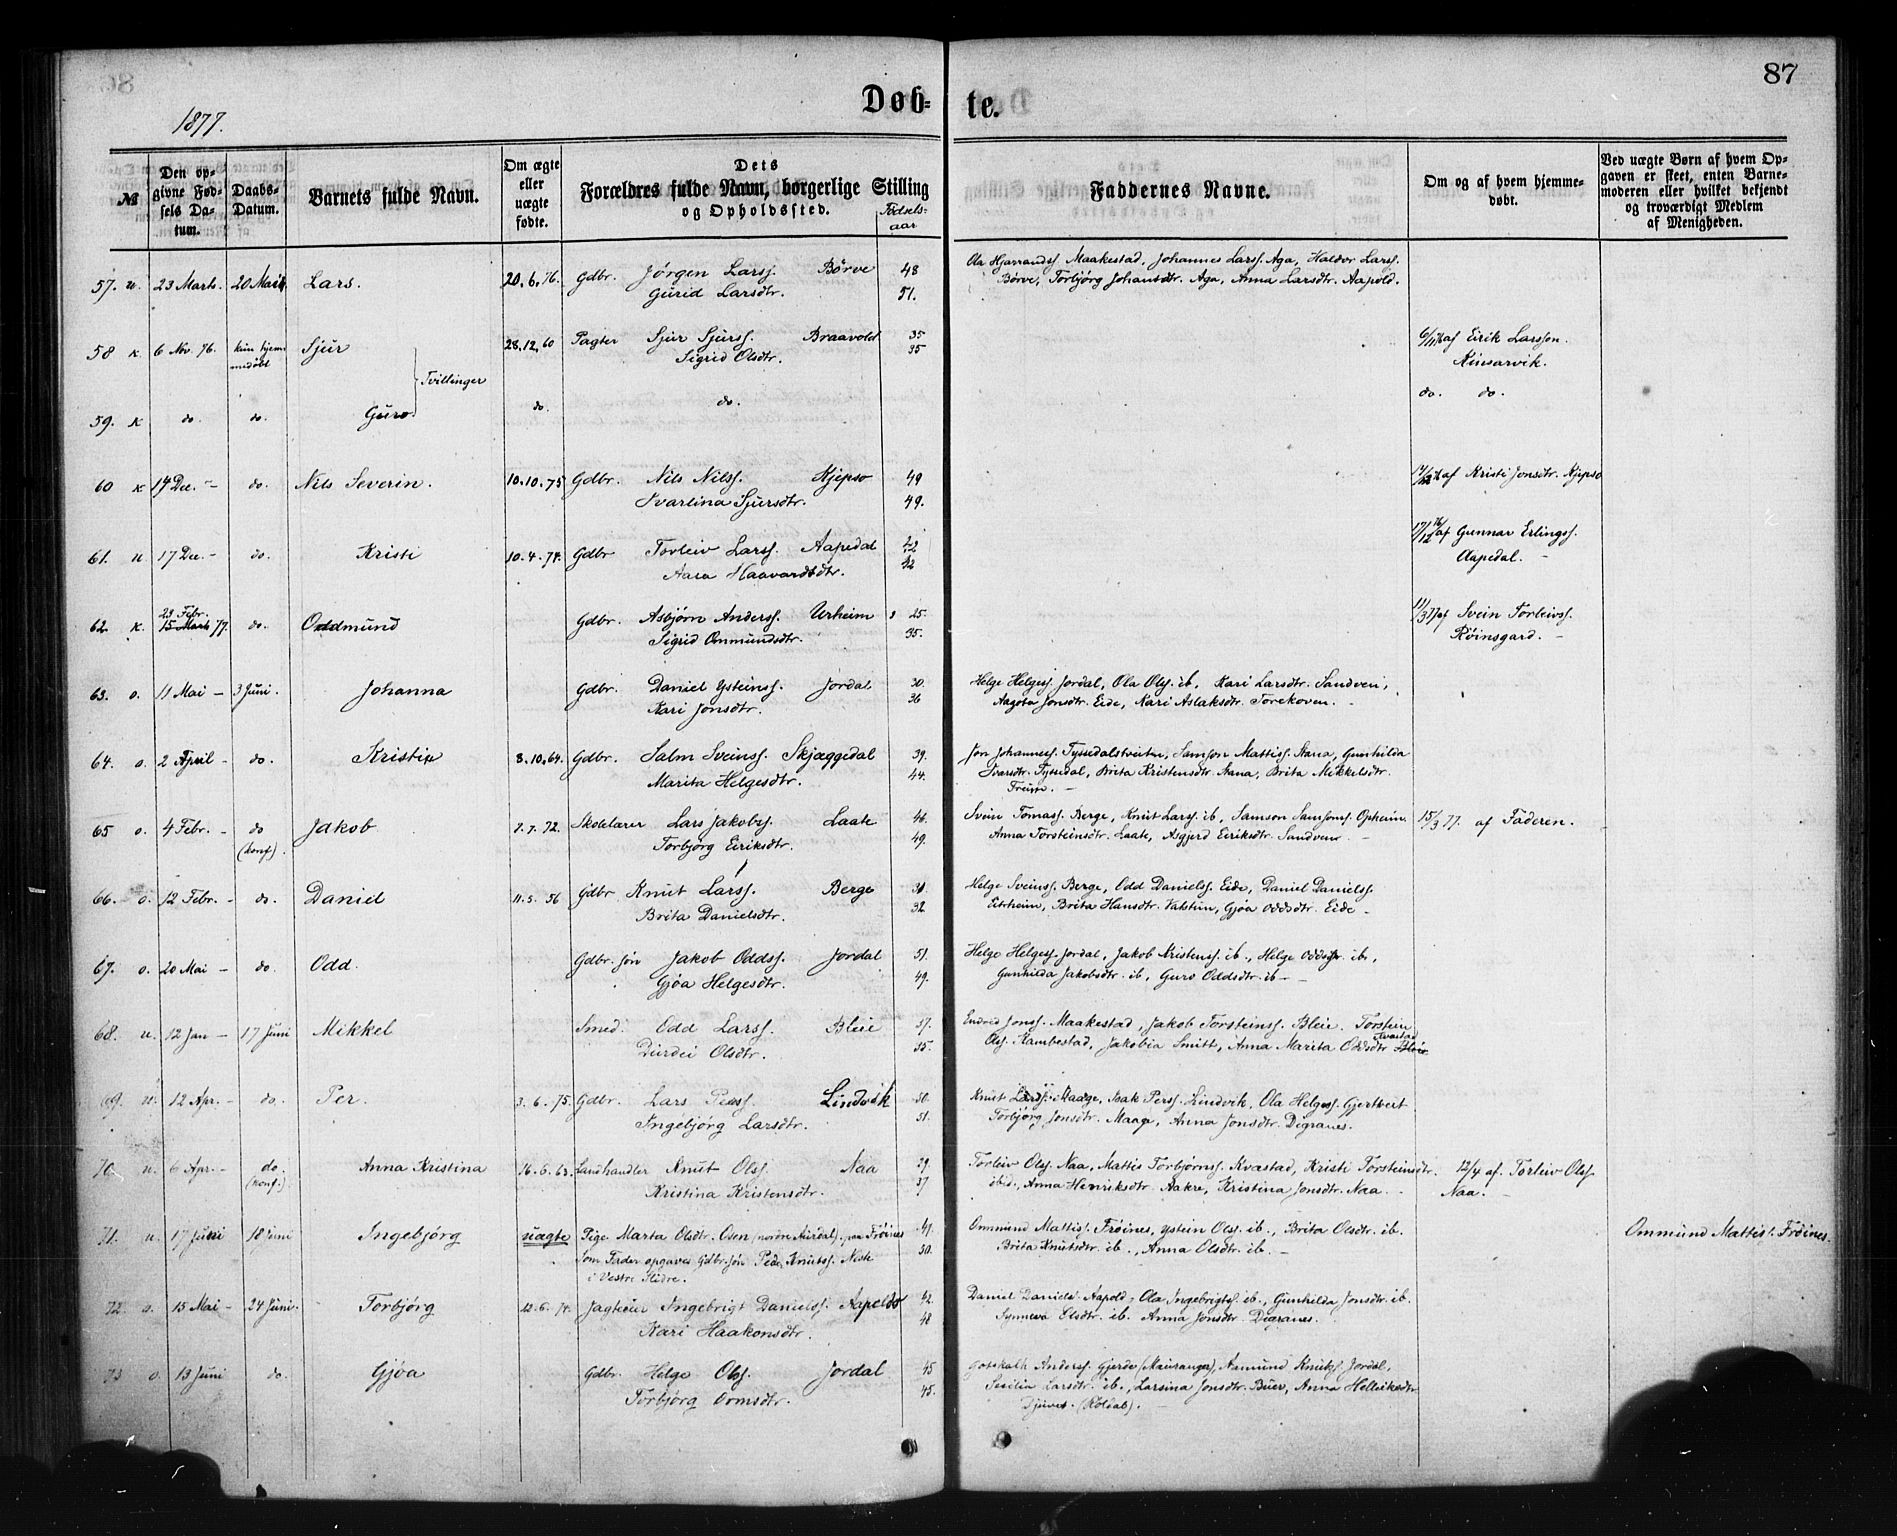 87
Døb-
te.
1877.
№
Den opgivne Fødsels Datum.
Daabs-Datum.
Barnets fulde Navn.
Om ægte eller uægte fødte.
Dets Forældres fulde Navn, borgerlige Stilling og Opholdssted.
Fødselsaar
Faddernes Navne.
Om og af hvem hjemmedøbt.
Ved uægte Børn af hvem Opgaven er skeet, enten Barnemoderen eller hvilket bekjendt og troværdigt Medlem af Menigheden.
57. u. 23 Marts. 20 Mai Lars. 20.6.76. Gdbr. Jørgen Larss. Børve 48
Gurid Larsdtr. 51.
Ola Hjarrandss. Maakestad, Johannes Larss. Aga, Haldor Larss.
Børve, Torbjørg Johansdtr. Aga, Anna Larsdtr. Aapold.
58 k. 6 Nov. 76. kun hjemmedøbt Sjur 28.12.60 Pagter Sjur Sjurss. Braavold 35
Sigrid Olsdtr. 35
af Eirik Larsson.
Kinsarvik.
Tvillinger
59. k do. do. Guro. do. do. do. do.
60 k 14 Dec. - do. Nils Severin. 10.10.75 Gdbr. Nils Nilss. Hjepso 49
Ivarlina Sjursdtr. 49.
af Kristi Jonsdtr. Hjepso
61. u 17 Dec. - do. Kristi 10.4.74. Gdbr Torleiv Larss. Aapedal 42
Aasa Haavardsdtr. 42
17/12 76 af Gunnar Erlingss.
Aapedal. -
62. k. 23 Febr. 15 Marts 77. do. Oddmund Gdbr. Asbjørn Anderss. Urheim 25.
Sigrid Ommundsdtr. 35.
11/3 77 af Svein Torleivss.
Røinsgard. -
63. o. 11 Mai - 3 Juni. Johanna Gdbr. Daniel Ysteinss. Jordal 30.
Kari Jonsdtr. 36
Helge Helgess. Jordal, Ola Olss. ib, Kari Larsdtr. Sandven,
Aagota Jonsdtr. Eide, Kari Aslaksdtr. Torekoven. -
64. o. 2 April - do. Kristi 8.10.64. Gdbr. Salm Sveinss. Skjæggedal 39.
Marita Helgesdtr. 44.
Jon Johanness. Tyssedalstveiten, Samson Mattiss. Stana, Gunhilda
Ivarsdtr. Tyssedal, Brita Kristensdtr. Stana, Brita Mikkelsdtr.
Freim. -
65 o. 4 Febr. - do (konf.). Jakob 7.7.72. Skolelærer Lars Jakobs. Laate 46.
Torbjørg Eiriksdtr. 49.
Svein Tomass. Berge, Knut Larss. ib, Samson Samsons. Opheim.
Anna Torsteinsdtr. Laate, Asgjerd Eiriksdtr. Sandven. -
15/3 77. af Faderen.
66. o. 12 Febr. - do. Daniel 11.5.56 Gdbr Knut Larss. Berge
Brita Danielsdtr. 32
Helge Sveinss. Berge, Odd Danielss. Eide, Daniel Danielss.
Eitrheim, Brita Hansdtr. Gjøa Oddsdtr. Eide -
67. o. 20 Mai - do. Odd. Gdbr. søn Jakob Oddss. Jordal 51.
Gjøa Helgesdtr. 49.
Helge Helgess. Jordal, Jakob Kristenss. ib., Helge Oddss. ib,
Gunhilda Jakobsdtr. ib, Guro Oddsdtr. ib -
68. u. 12 Jan - 17 Juni Mikkel Smed. Odd Larss. Bleie 37.
Durdei Olsdtr. 35.
Endred Jonss. Maakestad, Jakob Torsteinss. Bleie. Torstein
Olss. Kambestad, Jakobia Smitt, Anna Marita Oddsdtr Kvastad Bleie
69. u. 12 Apr. - do. Per. 3.6.75. Gdbr. Lars Perss. Lindvik 50.
Ingebjørg Larsdtr. 51.
Knut Larss. Maage, Isak Perss. Lindvik, Ola Helgess. Gjertveit
Torbjørg Jonsdtr. Maage, Anna Jonsdtr. Digranes.
70. u. 6 Apr. - do. (konf.) Anna Kristina 16.6.63. Landhandler Knut Olss. Naa 29.
Kristina Kristensdtr. 37
Torleiv Olss. Naa, Mattis Torbjørnss. Kvastad, Kristi Torsteinsdtr.
ibid., Anna Henriksdtr. Aakre, Kristina Jonsdtr. Naa. -
12/4 af. Torleiv Olss.
Naa. -
71. u. 17 Juni 18 Juni Ingebjørg uægte Pige Marta Olsdtr. Osen (nordre Aurdal). paa Frøines 41.
Som Fader opgaves Gdbr. søn Peder Knutss. Neste 50.
i Vestre Slidre.
Ommund Mattiss. Frøines, Ystein Olss. ib., Brita Olsdtr. ib.
Brita Knutsdtr. ib., Anna Olsdtr. ib. -
Ommund Mattiss. Frøines.
72. o. 15 Mai - 24 Juni. Torbjørg 23.6.74. Jagteier Ingebrigt Danielss. Aapeldo 42.
Kari Haakonsdtr. 48
Daniel Daniels. Aapold, Ola Ingebrigts. ib., Gunhilda Jonsdtr. ib.
Synneva Olsdtr. ib. Anna Jonsdtr. Digranes.
73 o. 13 Juni do. Gjøa Gdbr. Helge Olss. Jordal 45
Torbjørg Ormsdtr. 45.
Gotskalk Anderss. Gjerde (Mauranger), Aamund Knutss. Jordal,
Sesilia Larsdtr. ib., Larsina Jonsdtr. Buer, Anna Helleiksdtr
Djuve. (Røldal). -